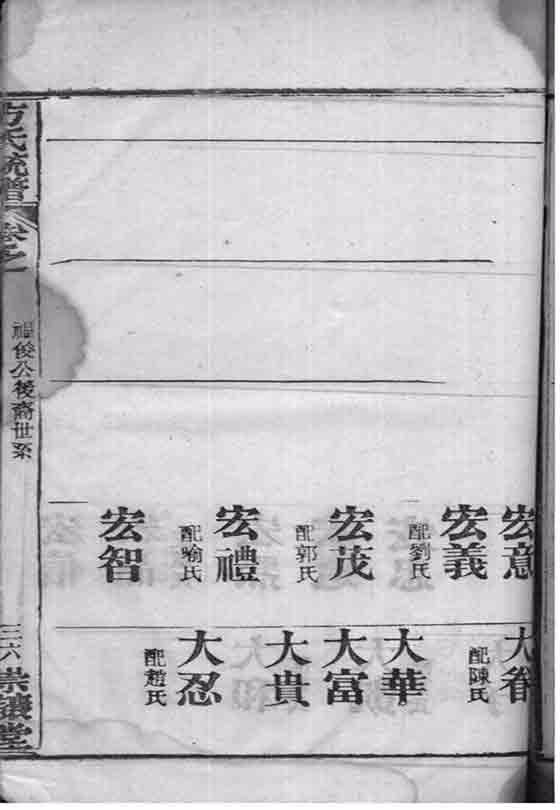 宏意
宏義
配劉氏
宏茂
配郭氏
宏禮
配喻氏
宏智
大眷
配陳氏
大華
大富
大貴
大忍
配趙氏
方氏統譜
卷之一
禔俊公後裔世系
三六
崇讓堂